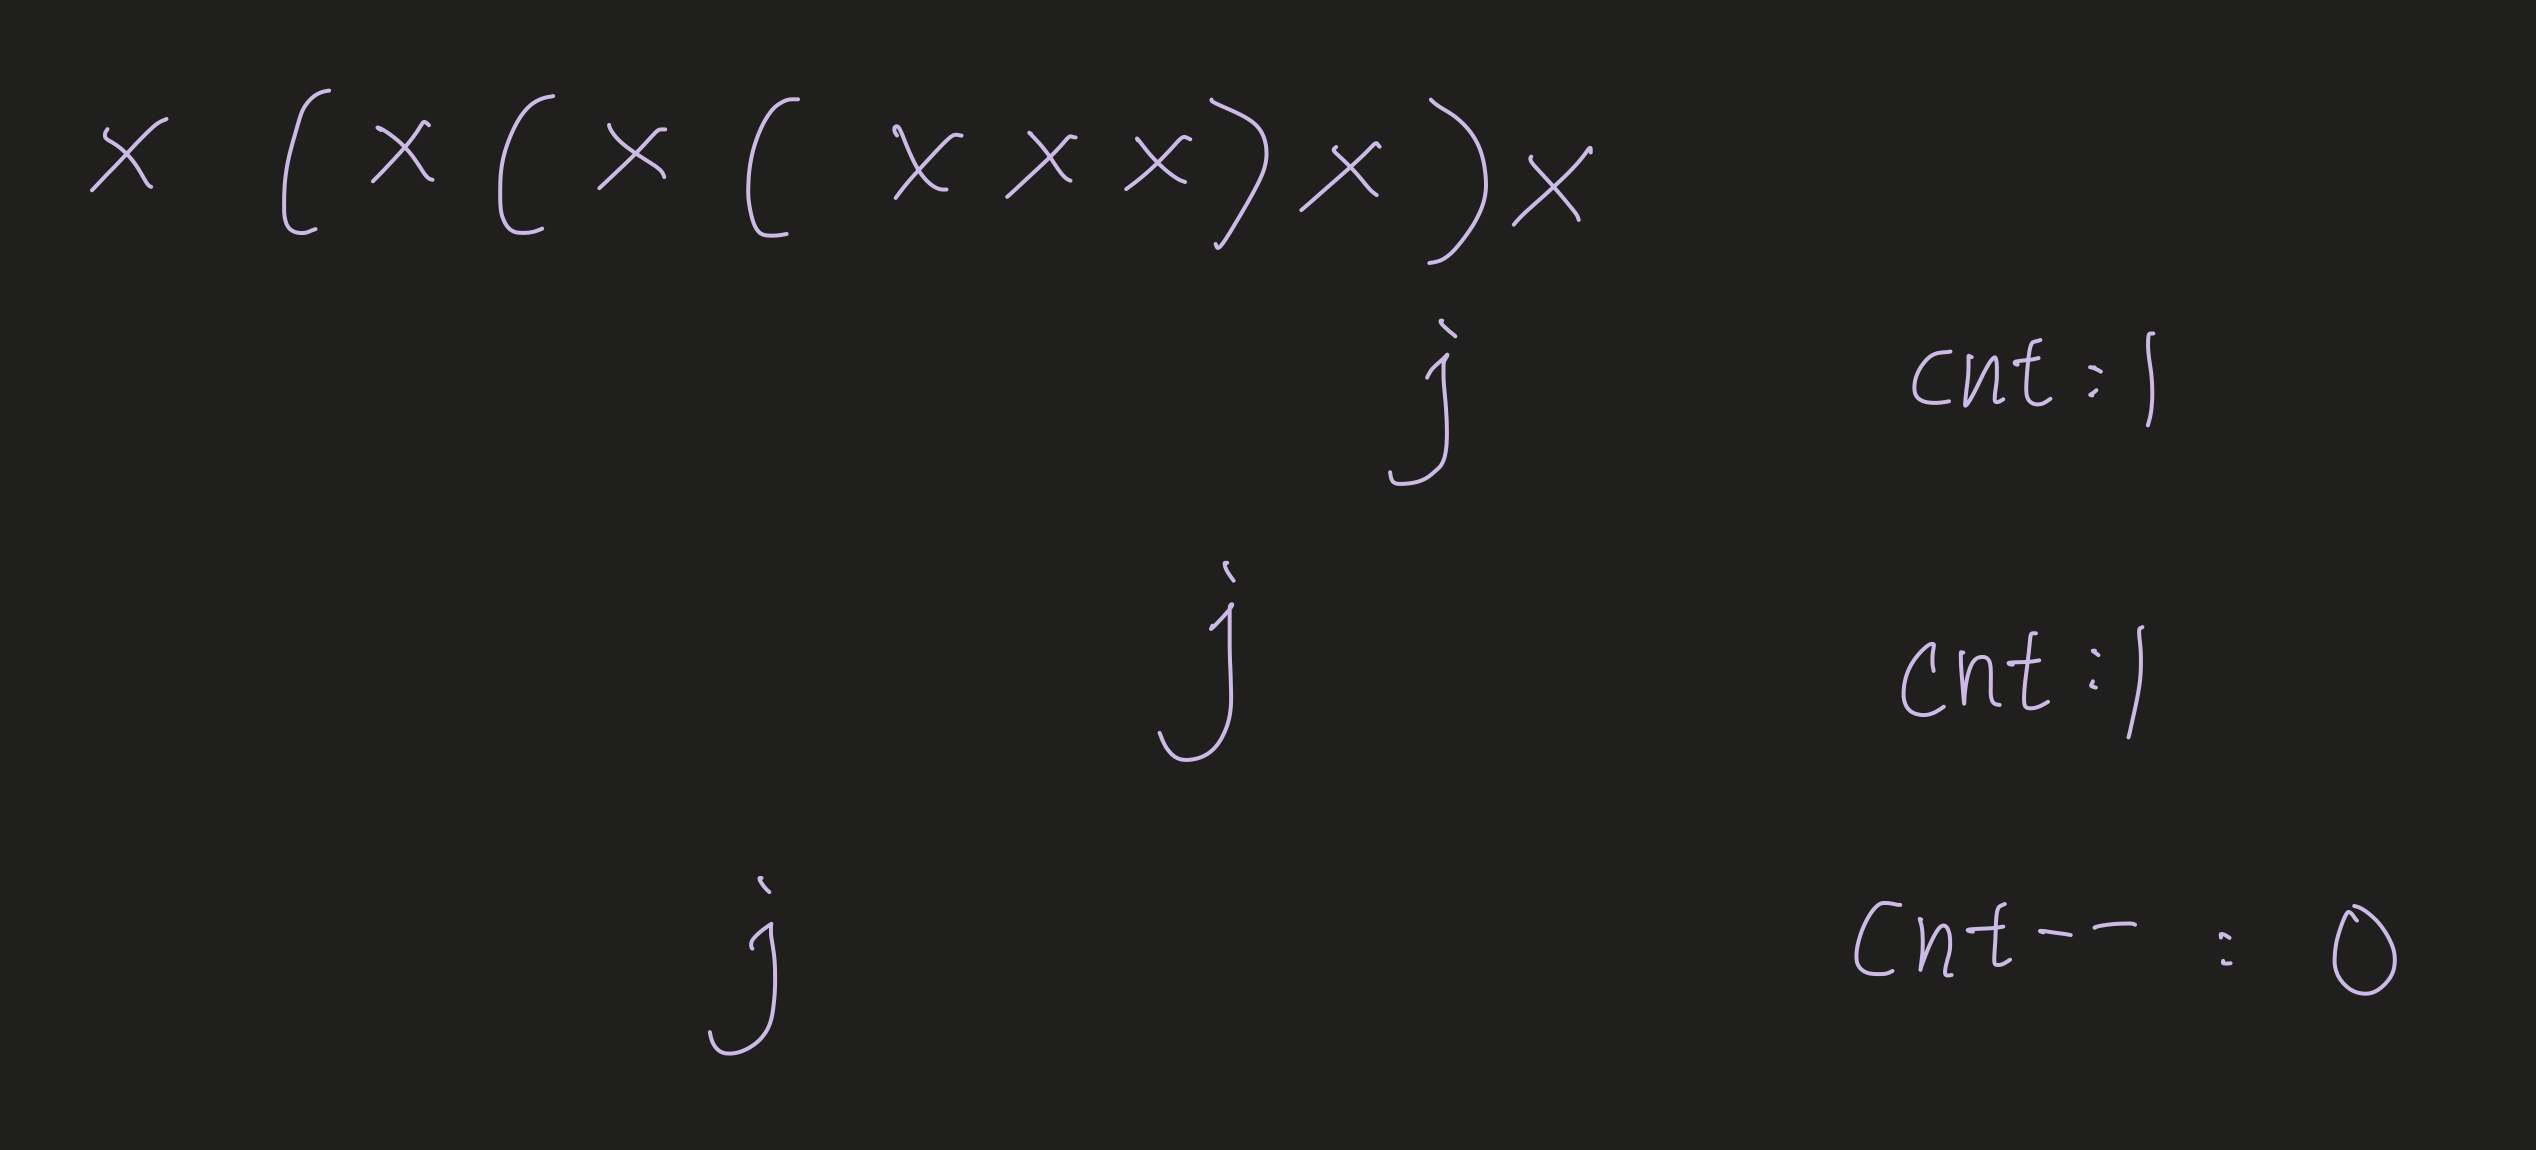 x ( x ( x ( x x x ) x ) x
j cnt : 1
j cnt : 1
j cnt -- : 0